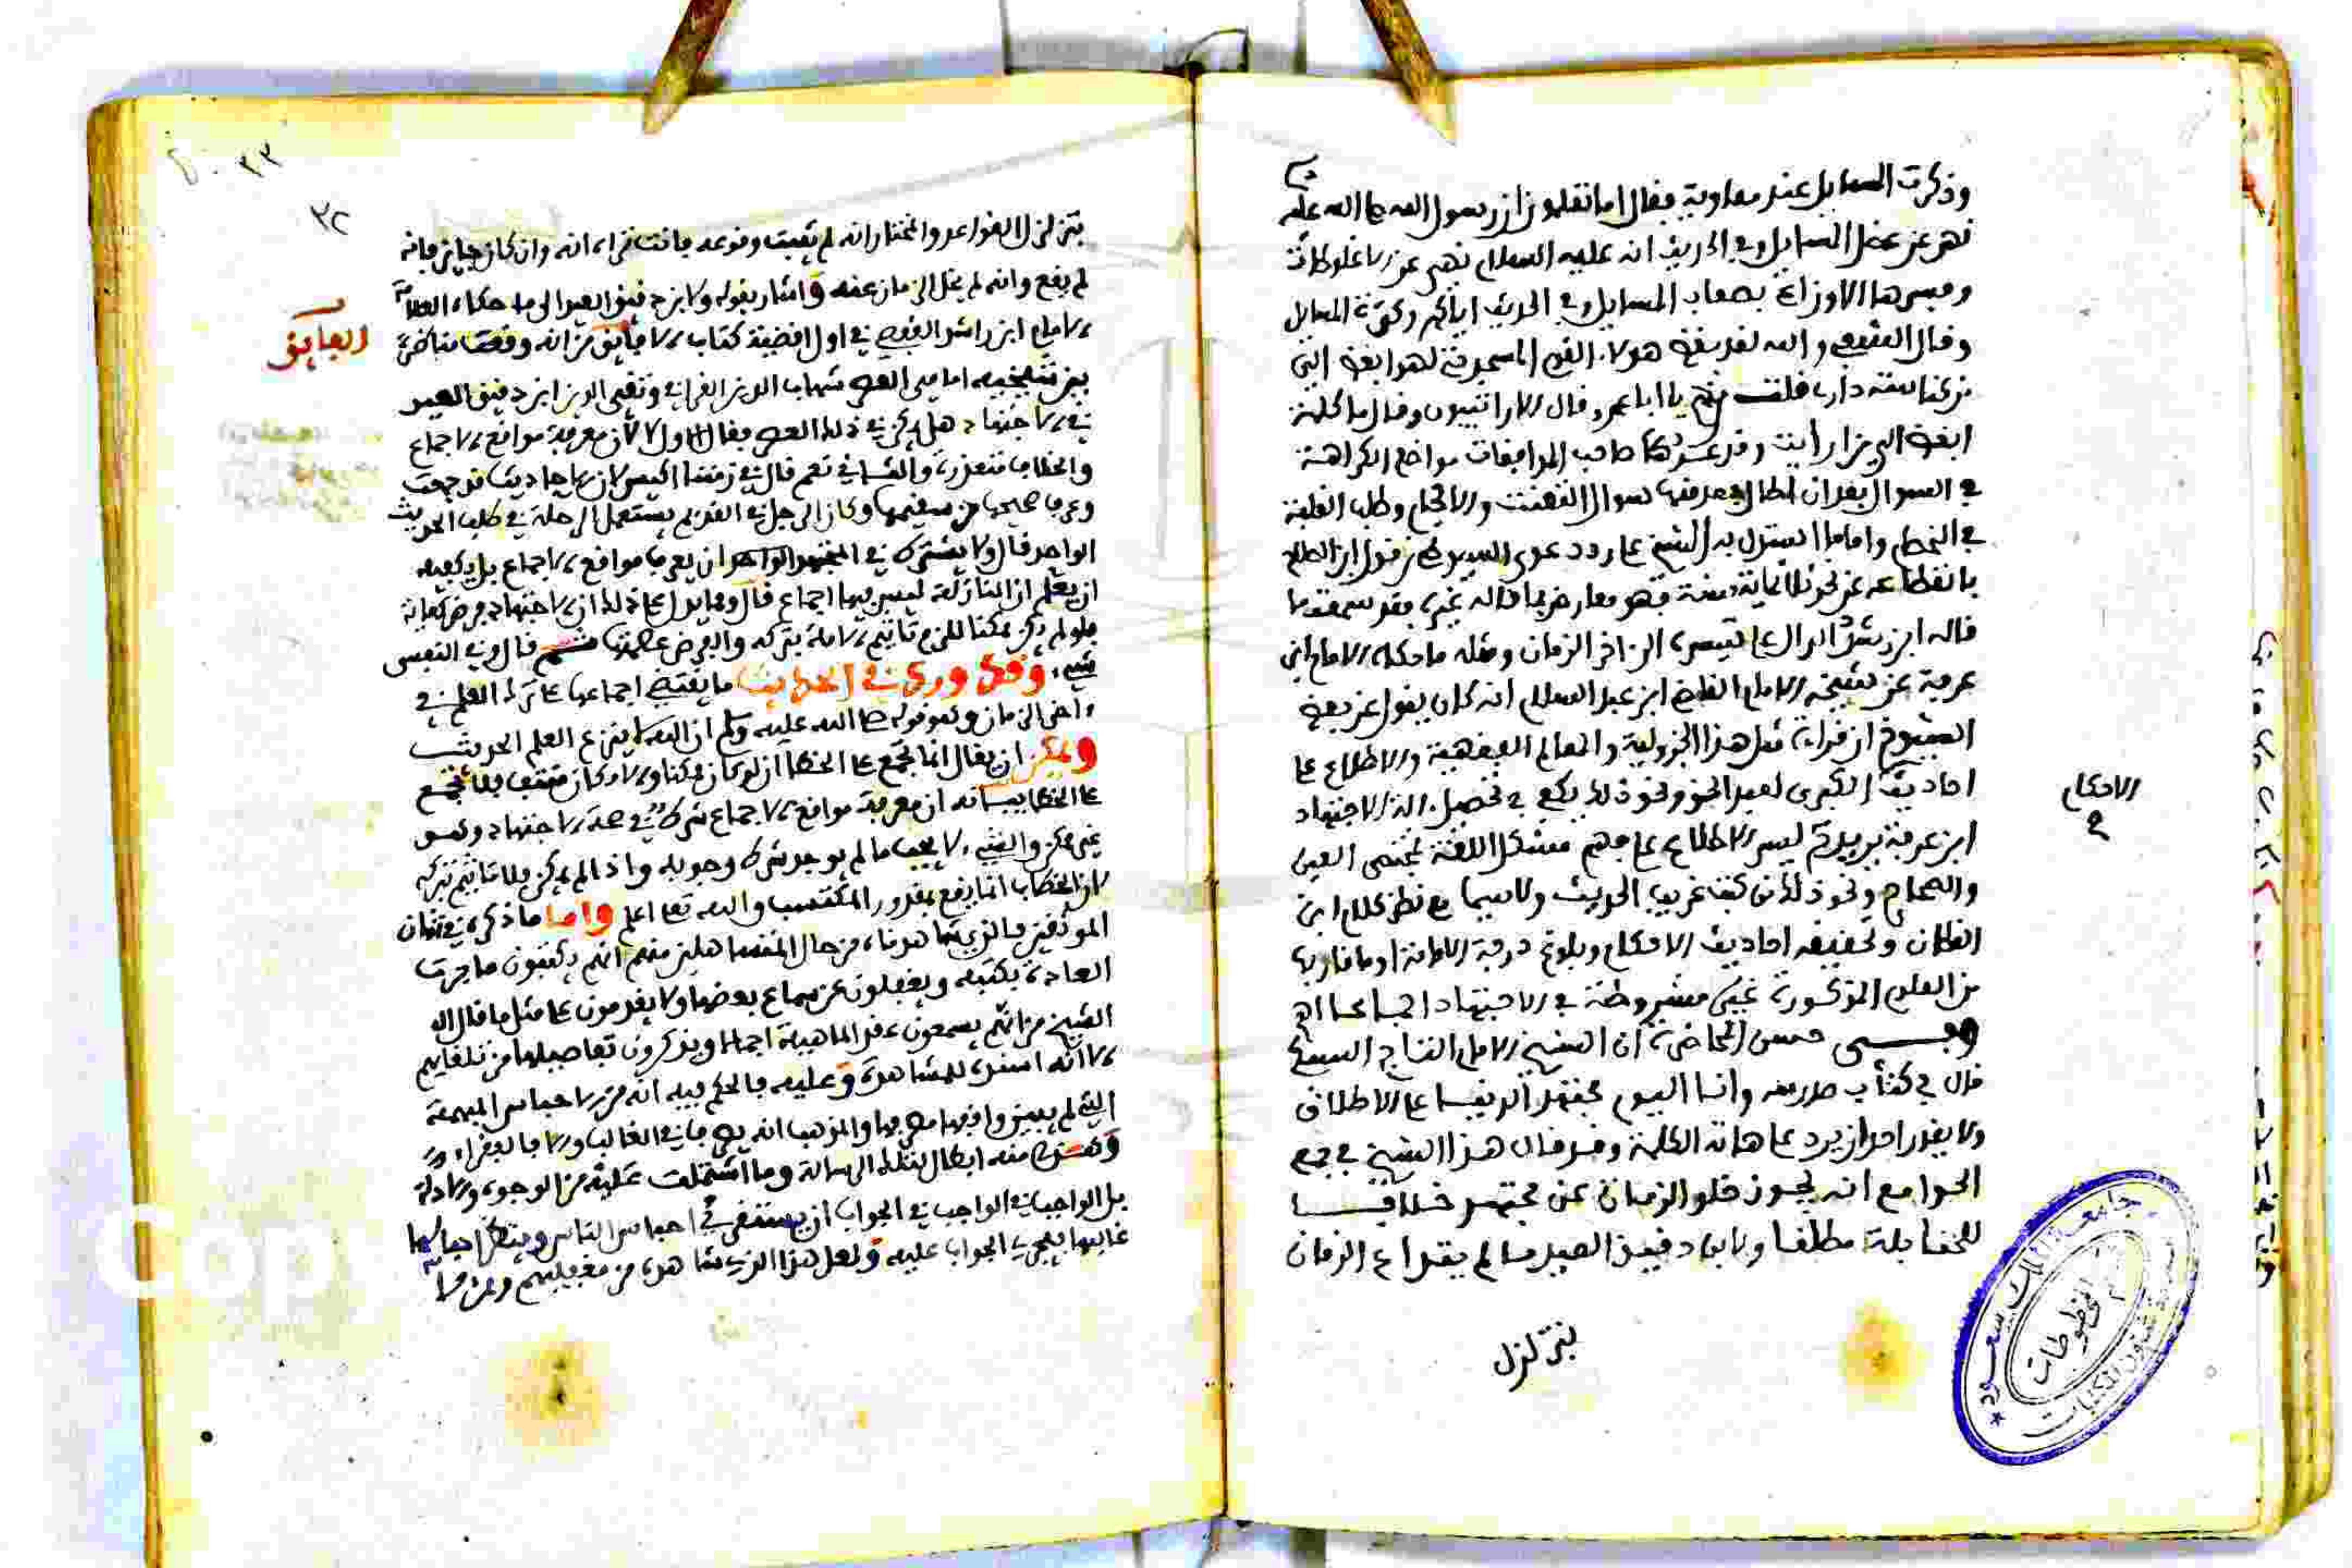 وذكرت المسايل عند معاوية فقال اما تعلمون ان رسول الله صلى الله عليه
نهى عن عضل المسايل وفي الحديث انه عليه السلام نهى عن الاغلوطات
وفسرها الاوزاعي بصعاب المسايل وفي الحديث اياكم وكثرة المسايل
وقال الشعبي والله لقد بغض هولاء القوم المسجد حتى لهو ابغض الي
من كناسة داري قلت من هم يا ابا عمرو قال الارائتيون وقال ما كلمة
ابغض الي من ارايت وقد عد صاحب الموافقات مواضع الكراهة
في السوال بعد ان اطال فعد منها سوال التعنت والافحام وطلب الغلبة
في الخصام واما ما استدل به الشيخ على رد دعوى السيوطي من قول ابن الصلاح
بانقطاعه عن نحو ثلاثماية سنة فهو معارض بما قاله غيره فقد سمعت ما
قاله ابن رشد الدال على تيسره الى اخر الزمان ومثله ما حكاه الامام ابن
عرفة عن شيخه الامام القاضي ابن عبد السلام انه كان يقول عن بعض
الشيوخ ان قراءة مثل هذا الجزولية والمعالم الفقهية والاطلاع على
احاديث الكبرى لعبد الحق ونحو ذلك يكفي في تحصيل الة الاجتهاد
ابن عرفة يريد مع يسر الاطلاع على فهم مشكل اللغة بمختصر العين
والصحاح ونحو ذلك من كتب غريب الحديث ولا سيما مع نظر كلام ابن
القطان وتحقيقه احاديث الاحكام وبلوغ درجة الامامة او ما قاربها
من العلوم المذكورة غير مشروطة في الاجتهاد اجماعا اه
وفي حسن المحاضرة ان الشيخ الامام التاج السبكي
قال في كتاب وانا اليوم مجتهد الدنيا على الاطلاق
ولا يقدر احد ان يرد على هاته الكلمة وقد قال هذا الشيخ في جمع
الجوامع انه يجوز خلو الزمان عن مجتهد خلافا
للحنابلة مطلقا ولابن دقيق العيد ما لم يتداع الزمان
بتزلزل
الاحكام
٣٣
٣٢
بتزلزل القواعد والمختار انه لم يثبت وقوعه فانت تراه انه وان كان جايزا فانه
لم يقع وانه لم يخل الزمان عنه واشار بقوله ولابن دقيق العيد الى ما حكاه العلامة
الامام ابن راشد القفصي في اول اقضية كتاب الفايق من انه وقعت مناظرة
الفايق
بين شيخيه امامي العصر شهاب الدين القرافي وتقي الدين ابن دقيق العيد
في الاجتهاد هل يمكن في ذلك العصر فقال الاول لا لان معرفة مواقع الاجماع
والخلاف متعذرة والثاني نعم قال في زمننا ايسر لان الاحاديث قد جمعت
وعرف صحيحها من سقيمها وكان الرجل في القديم يستعمل الرحلة في طلب الحديث
الواحد قال ولا يشترط في المجتهد الواحد ان يعرف مواقع الاجماع بل يكفيه
ان يعلم ان النازلة ليس فيها اجماع قال ومما يدل على ذلك ان الاجتهاد فرض كفاية
فلو لم يكن ممكنا للزم تاثيم الامة بتركه والفرض عصمتها قال وفي النفس
شيء وقد ورد في الحديث ما يقتضي اجماعها على ترك العلم في
اخر الزمان وهو قوله صلى الله عليه وسلم ان الله لا ينزع العلم الحديث
ويمكن ان يقال انما تجمع على الخطا ان لو كان ممكنا والامكان منتف فلا تجمع
على الخطا بيانه ان معرفة مواقع الاجماع شرط في صحة الاجتهاد وليس
غير ممكن والشيء لا يجب ما لم يوجد شرط وجوبه واذا لم يمكن فلا تاثيم بتركه
لان الخطاب انما يقع بمقدور المكتسب والله تعالى اعلم واما ما ذكره في شان
الموثقين فالذي شاهدناه من حال المتساهلين منهم انهم يكتبون ما جرت
العادة بكتبه ويغفلون عن سماع بعضها ولا يقدمون على مثل ما قال
الشيخ من انهم يسمعون عقد الماهية اجمالا ويذكرون تفاصيلها من تلقايهم
الا انه اسنده للمشاهدة وعليه فالحكم فيه انه من الاحباس المبهمة
التي لم يبينوا فيها مصرفها والمذهب انه يصرف في الغالب والا فالفقراء
منه ابطال بتلك الرسالة وما اشتملت عليه من الوجوه والادلة
بل الواجب في الجواب ان يستقرى احباس الناس وينظر احباسها
غالبها فيجري الجواب عليه ولعل هذا الذي شاهده من مغفليهم